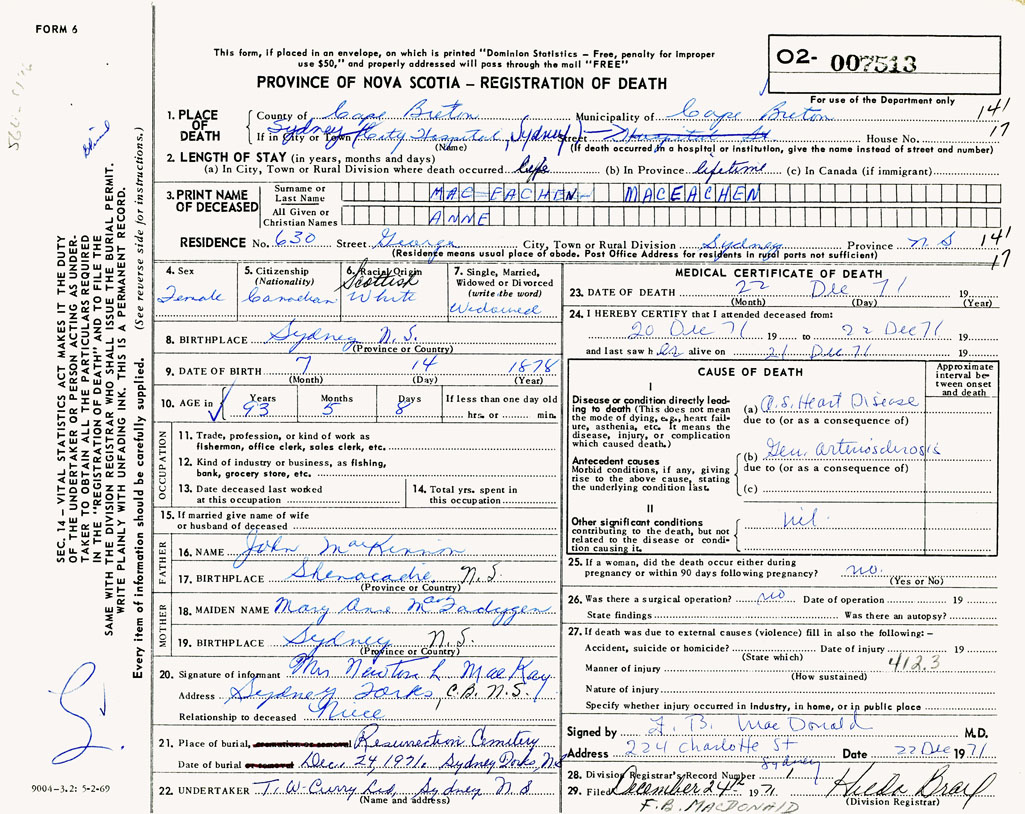 FORM 6
This form, if placed in an envelope, on which is printed "Dominion Statistics – Free, penalty for improper
use $50," and properly addressed will pass through the mail "FREE"
PROVINCE OF NOVA SCOTIA – REGISTRATION OF DEATH
O2- 007513
For use of the Department only
1. PLACE OF DEATH
County of Cape Breton Municipality of Cape Breton 141
If in City or Town Sydney City Hospital, Sydney Street Hospital St House No. 17
(Name) (If death occurred in a hospital or institution, give the name instead of street and number)
2. LENGTH OF STAY (in years, months and days)
(a) In City, Town or Rural Division where death occurred life (b) In Province lifetime (c) In Canada (if immigrant)
3. PRINT NAME OF DECEASED
Surname or Last Name MAC EACHEN MACEACHEN
All Given or Christian Names ANNE
RESIDENCE No. 630 Street George City, Town or Rural Division Sydney Province N.S 141
(Residence means usual place of abode. Post Office Address for residents in rural parts not sufficient) 17
4. Sex Female
5. Citizenship (Nationality) Canadian
6. Racial Origin Scottish White
7. Single, Married, Widowed or Divorced (write the word) Widowed
8. BIRTHPLACE Sydney N.S.
(Province or Country)
9. DATE OF BIRTH 7 14 1878
(Month) (Day) (Year)
10. AGE in Years 93 Months 5 Days 8 If less than one day old hrs. or min.
OCCUPATION
11. Trade, profession, or kind of work as
fisherman, office clerk, sales clerk, etc.
12. Kind of industry or business, as fishing,
bank, grocery store, etc.
13. Date deceased last worked
at this occupation
14. Total yrs. spent in
this occupation
15. If married give name of wife
or husband of deceased
FATHER
16. NAME John MacKinnon
17. BIRTHPLACE Shenacadie N.S.
(Province or Country)
MOTHER
18. MAIDEN NAME Mary Anne
19. BIRTHPLACE Sydney N.S.
(Province or Country)
20. Signature of informant Mrs Newton L MacKay
Address Sydney Forks, C.B. N.S.
Relationship to deceased Niece
21. Place of burial, cremation or removal Resurrection Cemetery
Date of burial Dec. 24 1971. Sydney Forks, N.S
22. UNDERTAKER T. W. Curry Ltd, Sydney N S
(Name and address)
MEDICAL CERTIFICATE OF DEATH
23. DATE OF DEATH 22 Dec 71 19
(Month) (Day) (Year)
24. I HEREBY CERTIFY that I attended deceased from:
20 Dec 71 19 to 22 Dec 71 19
and last saw her alive on 21 Dec 71 19
CAUSE OF DEATH
Approximate interval between onset and death
I
Disease or condition directly leading to death (This does not mean the mode of dying, e.g., heart failure, asthenia, etc. It means the disease, injury, or complication which caused death.)
(a) A.S. Heart Disease
due to (or as a consequence of)
Antecedent causes
Morbid conditions, if any, giving rise to the above cause, stating the underlying condition last.
(b) Gen. arteriosclerosis
due to (or as a consequence of)
(c)
II
Other significant conditions
contributing to the death, but not related to the disease or condition causing it.
nil
25. If a woman, did the death occur either during
pregnancy or within 90 days following pregnancy? no.
(Yes or No)
26. Was there a surgical operation? no Date of operation 19
State findings Was there an autopsy?
27. If death was due to external causes (violence) fill in also the following: –
Accident, suicide or homicide? Date of injury 19
(State which)
Manner of injury 412.3
(How sustained)
Nature of injury
Specify whether injury occurred in industry, in home, or in public place
Signed by F. B. MacDonald M.D.
Address 224 Charlotte St Sydney Date 22 Dec 1971
28. Division Registrar's Record Number 1
29. Filed December 24th 1971. Hilda
(Division Registrar)
F.B. MACDONALD
SEC. 14 – VITAL STATISTICS ACT MAKES IT THE DUTY
OF THE UNDERTAKER OR PERSON ACTING AS UNDER-
TAKER TO OBTAIN ALL THE PARTICULARS REQUIRED
IN THE "REGISTRATION OF DEATH" AND TO FILE THE
SAME WITH THE DIVISION REGISTRAR WHO SHALL ISSUE THE BURIAL PERMIT.
WRITE PLAINLY WITH UNFADING INK. THIS IS A PERMANENT RECORD.
Every item of information should be carefully supplied. (See reverse side for instructions.)
9004-3.2: 5-2-69